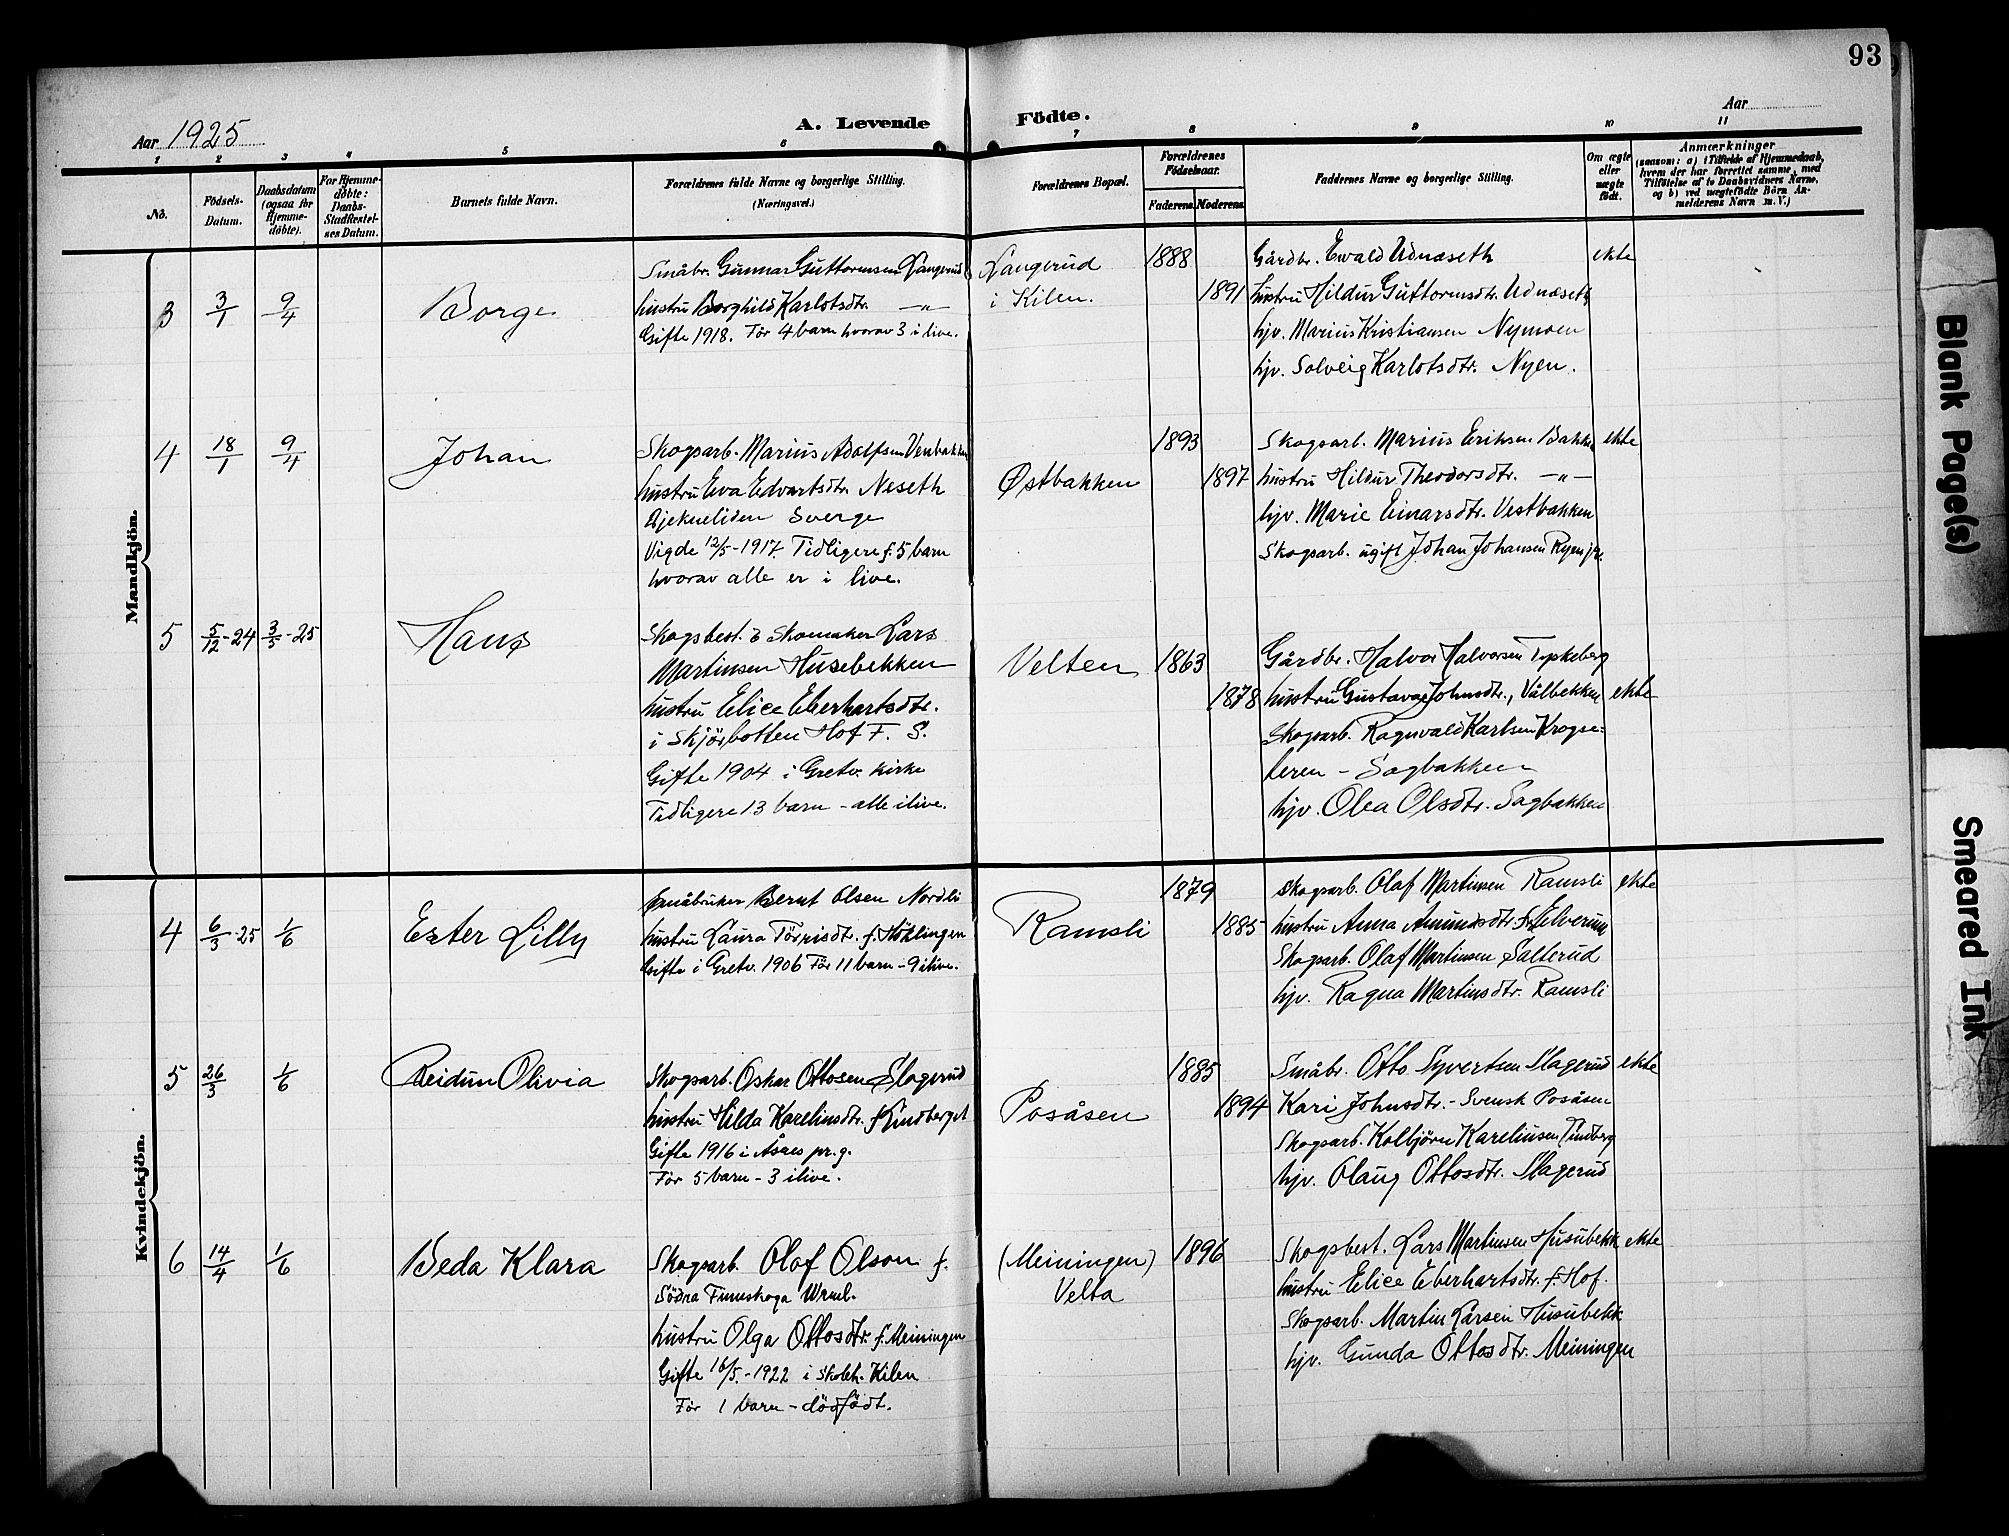 93
Aar 1925
A. Levende
Födte.
Aar
1 2 3 4 5 6 7 8 9 10 11
No.
Födsels-
Datum.
Daabsdatum
(ogsaa for
Hjemme-
döbte).
For Hjemme-
döbte:
Daabs-
Stadfæstel-
ses Datum.
Barnets fulde Navn.
Forældrenes fulde Navne og borgerlige Stilling.
(Næringsvei.)
Forældrenes Bopæl.
Forældrenes
Födselsaar.
Faderens. Moderens.
Faddernes Navne og borgerlige Stilling.
Om ægte
eller
uægte
födt.
Anmærkninger
(saasom: a) i Tilfælde af Hjemmedaab,
hvem der har forrettet samme, med
Tilföielse af to Daabsvidners Navne,
og b) ved uægtefödte Börn An-
melderens Navn m. V.)
Mandkjön.
3 3/1 9/4 Borge
Småbr. Gunnar Guttormsen Langerud
hustru Borghild Karlotsdtr. —"—
Gifte 1918. Før 4 barn hvorav 3 i live.
Langerud
i Kilen.
1888
1891
Gårdbr. Ewald Udnæseth
hustru Hildur Guttormsdtr. Udnæseth
hjv. Marius Kristiansen Nymoen
hjv. Solveig Karlotsdtr. Nyen.
ekte
4 18/1 9/4 Johan
Skogsarb. Marius Adolfsen Venbakken
hustru Eva Edvartsdtr. Neseth
Bjekneliden Sverge
Vigde 12/5-1917 Tidligere f. 5 barn
hvorav alle er i live.
Østbakken
1893
1897
Skogsarb. Marius Eriksen Bakken
hustru Hildur Theodorsdtr. —"—
hjv. Marie Einarsdtr. Vestbakken
Skogsarb. ugift Johan Johansen Ryen jr.
ekte
5 5/12-24 3/5-25 Hans
Skogsbest. & Skomaker Lars
Martinsen Husebekken
hustru Elice Eberhartsdtr.
i Skjørbotten Hof F. S.
Gifte 1904 i Gretv. kirke
Tidligere 13 barn - alle i live.
Velten
1863
1878
Gårdbr. Halvor Halvorsen Tyskeberg
hustru Gustava Johnsdtr., Vålbekken
Skogsarb. Ragnvald Karlsen Krogse-
teren - Sagbakken
hjv. Olea Olsdtr. Sagbakken
ekte
Kvindekjön.
4 6/3-25 1/6 Ester Lilly
Småbruker Bernt Olsen Nordli
hustru Laura Törrisdtr. f. Höklingen
Gifte i Gretv. 1906 Før 11 barn - 9 i live.
Ramsli
1879
1885
Skogsarb. Olaf Martinsen Ramsli
hustru Anna Amundsdtr. f. Elverum
Skogsarb. Olaf Martinsen Salterud
hjv. Ragna Martinsdtr. Ramsli
ekte
5 26/3 1/6 Reidun Olivia
Skogsarb. Oskar Ottosen Slagerud
hustru Hilda Karelinsdtr. f. Lindberget
Gifte 1916 i Åsnes pr.g.
Før 5 barn - 3 i live.
Posåsen
1885
1894
Småbr. Otto Syvertsen Slagerud
Kari Johnsdtr. - Svensk Posåsen
Skogsarb. Kolbjørn Karelinsen Lindberg
hjv. Olaug Ottosdtr. Slagerud
ekte
6 14/4 1/6 Beda Klara
Skogsarb. Olof Olson f.
Södra Finnskoga Wrml.
hustru Olga Ottosdtr. f. Meiningen
Gifte 16/5-1922 i Skoleh. Kilen
Før 1 barn - dödfödt.
(Meiningen)
Velta
1896
Skogsbest. Lars Martinsen Husubekk
hustru Elice Eberhartsdtr. f. Hof.
Skogsarb. Martin Larsen Husubekk
hjv. Gunda Ottosdtr. Meiningen
ekte
Blank Page(s)
Smeared Ink